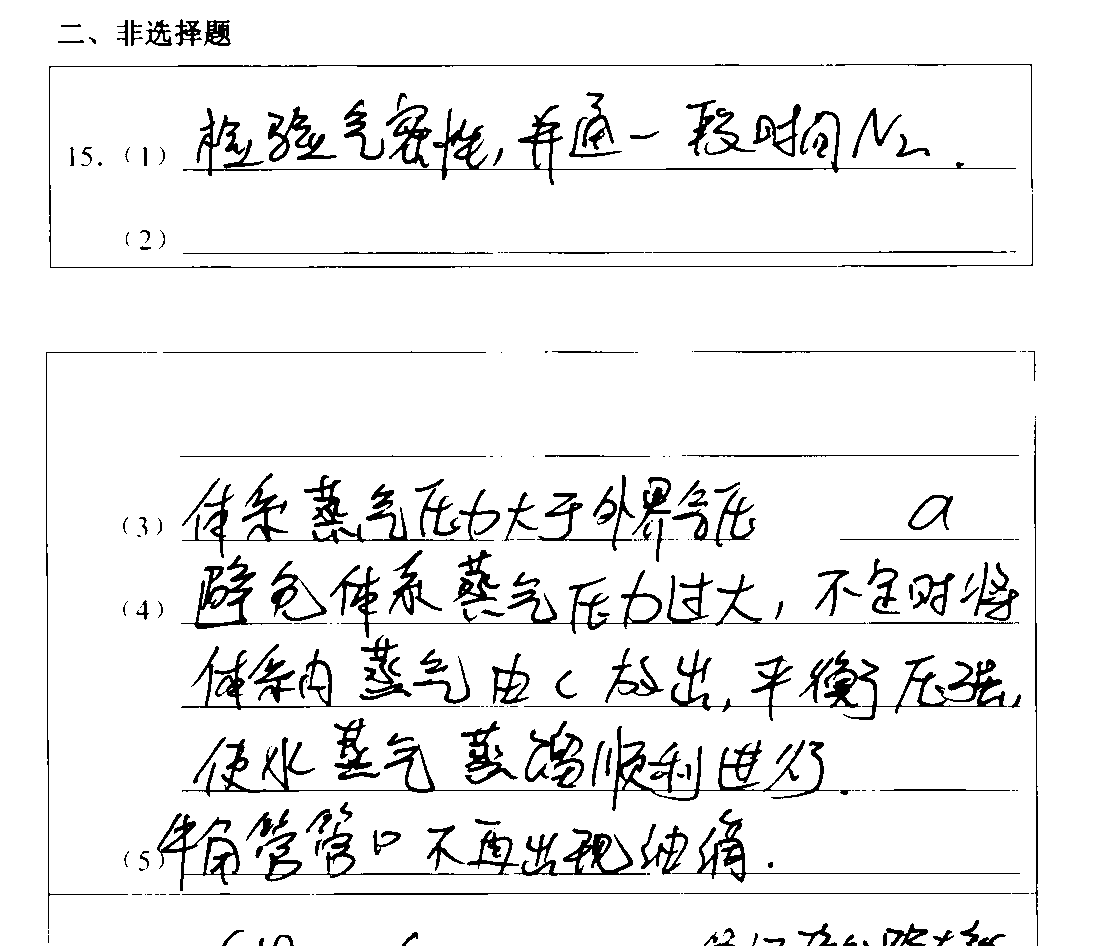 二、非选择题
15.（1）检验气密性，并通一段时间N₂.
（2）
（3）体系蒸气压力大于外界气压 a
（4）避免体系蒸气压力过大，不定时将
体系内蒸气由c放出，平衡了压强，
使水蒸气蒸馏顺利进行.
（5）牛角管管口不再出现油滴.